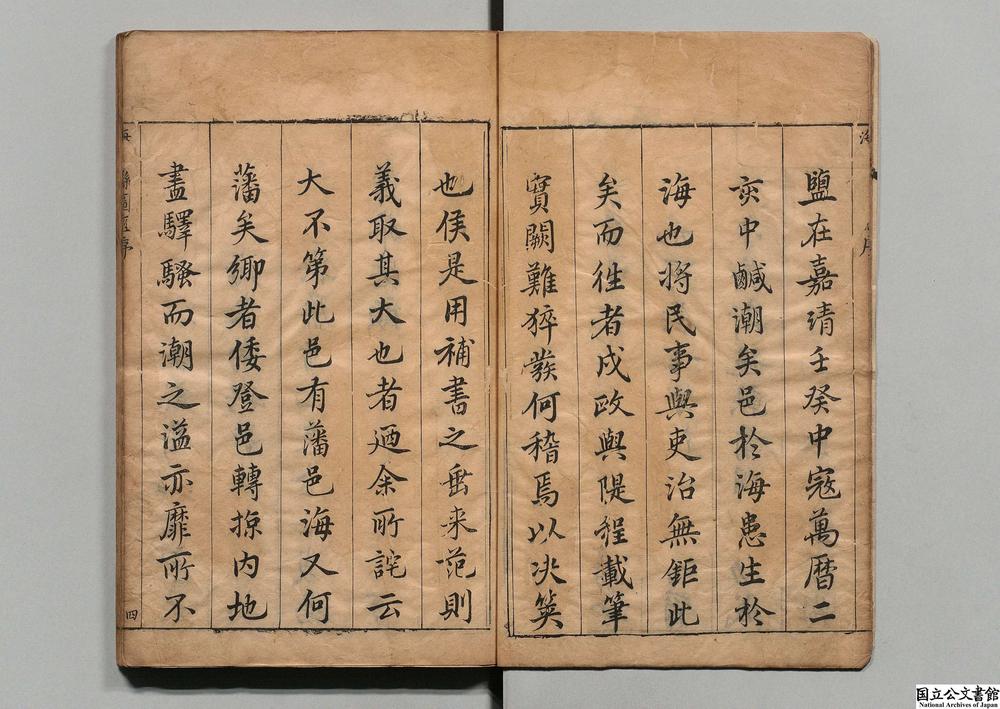 鹽在嘉靖壬癸中寇萬曆二
亥中鹹潮矣邑於海患生於
海也將民事與吏治無鉅此
矣而徃者戍政與隄程載筆
實闕難猝裝何稽焉以决筴
也侯是用補書之垂来范則
義取其大也者廼余所詫云
大不第此邑有藩邑海又何
藩矣鄉者倭登邑轉掠内地
盡驛騷而潮之溢亦靡所不
縣圖經序
四
国立公文書館
National Archives of Japan